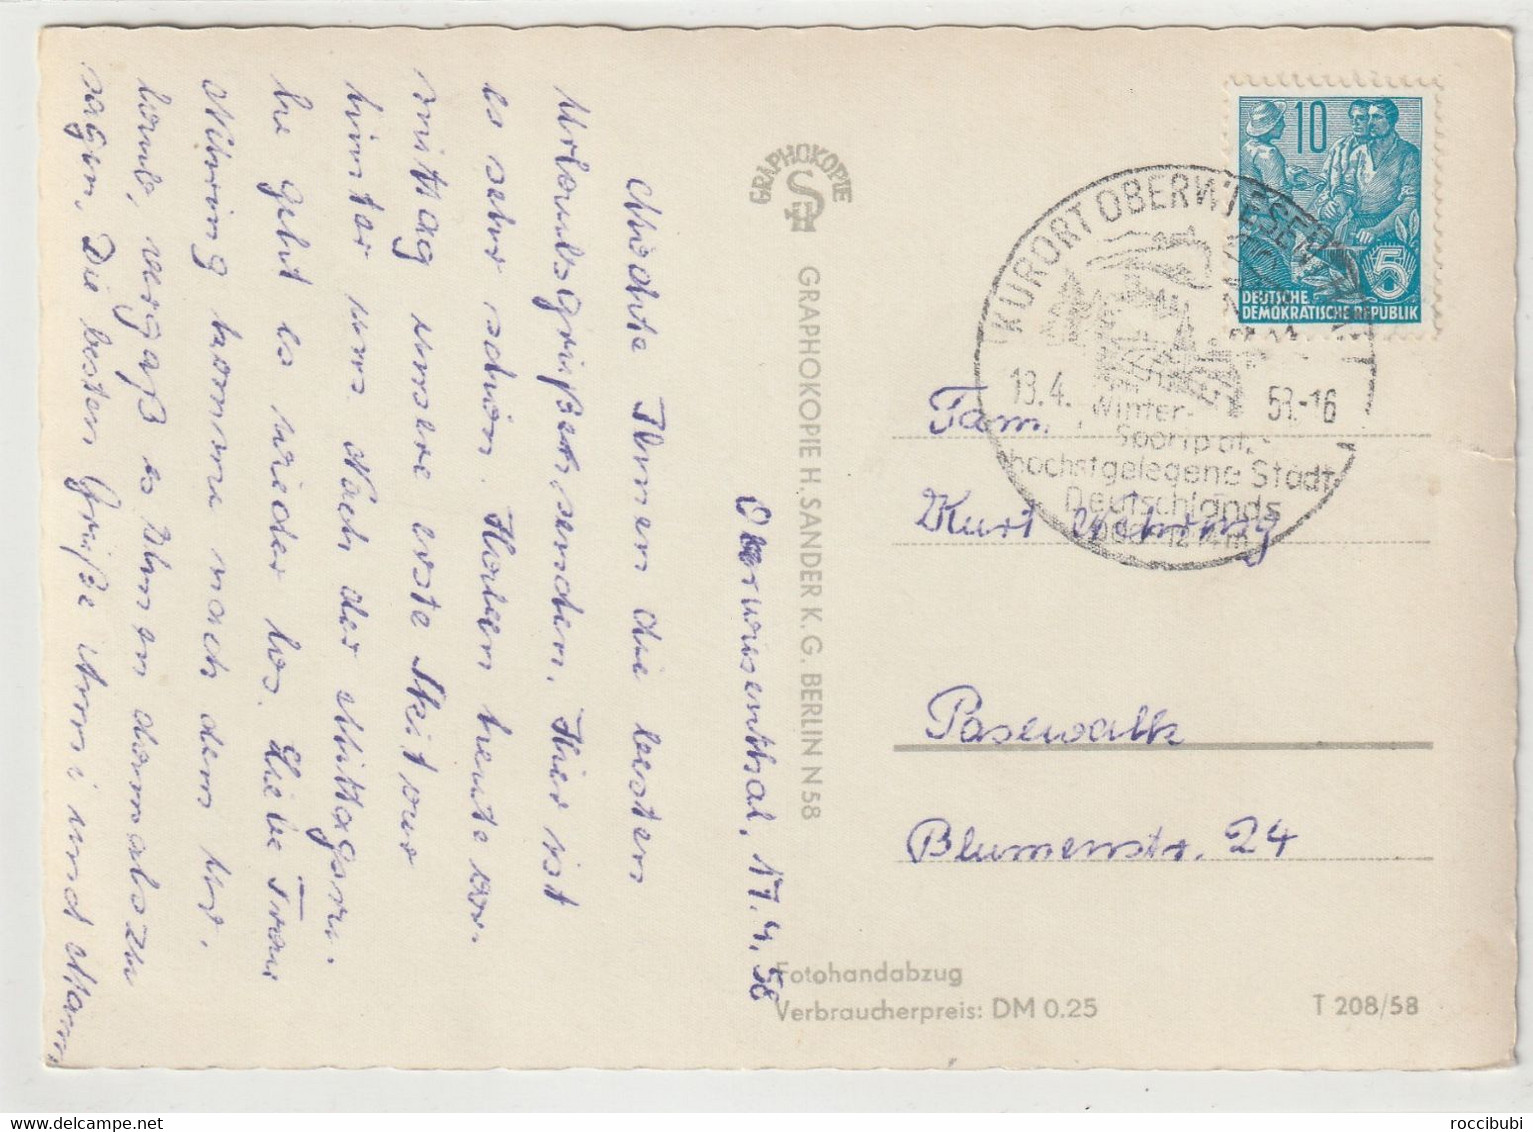 Oberwiesenthal, 17.4.58
Möchte Ihnen die besten
Urlaubsgrüße senden. Hier ist
es sehr schön. Haben heute vor-
mittag unsere erste Skitour
hinter uns. Nach der Mittagsru-
he geht es wieder los. Liebe Frau
komme nach dem Ur-
laub, vergaß es Ihnen damals zu
sagen. Die besten Grüße und Mann
GRAPHOKOPIE
GRAPHOKOPIE H. SANDER K. G. BERLIN N 58
10
5
DEUTSCHE
DEMOKRATISCHE REPUBLIK
KURORT OBERWIESENTHAL
18.4. 58.-16
Winter-
Sportpl.
höchstgelegene Stadt
Deutschlands
Fam.
Kurt
Pasewalk
Blumenstr. 24
Fotohandabzug
Verbraucherpreis: DM 0.25
T 208/58
roccibubi